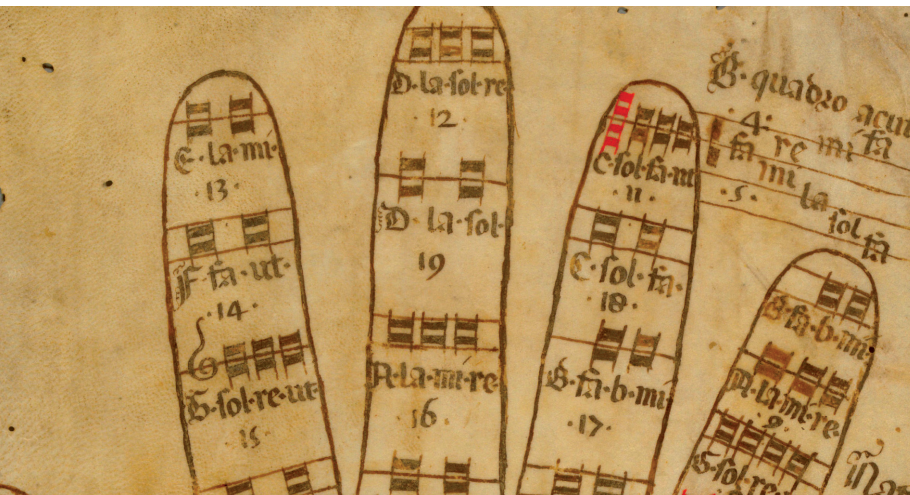 E·la·mi·
·13·
F·fa·ut·
·14·
G·sol·re·ut·
·15·
D·la·sol·re
·12·
D·la·sol·
19
A·la·mi·re
·16·
C·sol·fa·ut
·11·
C·sol·fa·
·18·
B·fa·b·mi·
·17·
B·quadro acut
·4· fa re mi fa
mi la
·5· sol
fa
B·fa·b·mi·
A·la·mi·re·
·9·
G·sol·re